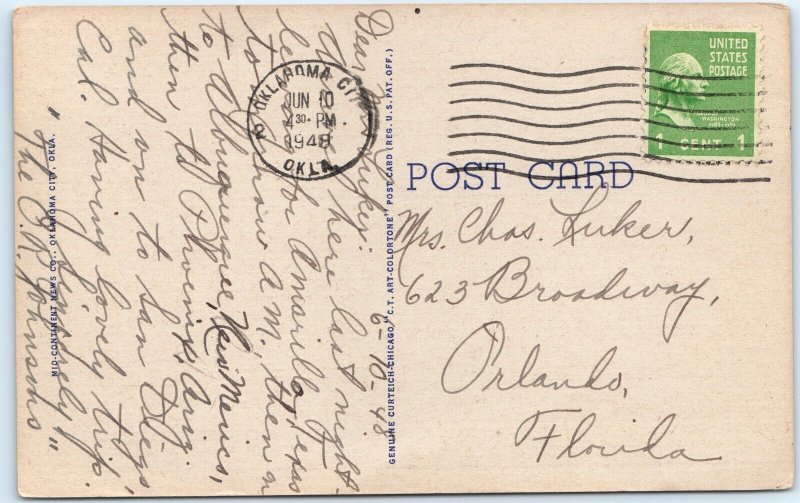 6-10-48
Dear Mrs. Luker:
here last night.
leave for Amarillo, Texas
to-morrow A.M., then on
to Albuquerque, New Mexico,
then to Phoenix, Ariz.
and on to San Diego,
Cal. Having lovely trip.
Sincerely
"The O.R. Johnsons"
MID-CONTINENT NEWS CO., OKLAHOMA CITY, OKLA.
GENUINE CURTEICH-CHICAGO "C.T. ART-COLORTONE" POST CARD (REG. U.S. PAT. OFF.)
OKLAHOMA CITY
2
JUN 10
4 30 PM
1948
OKLA.
UNITED
STATES
POSTAGE
WASHINGTON
1 CENT 1
POST CARD
Mrs. Chas. Luker,
623 Broadway,
Orlando,
Florida